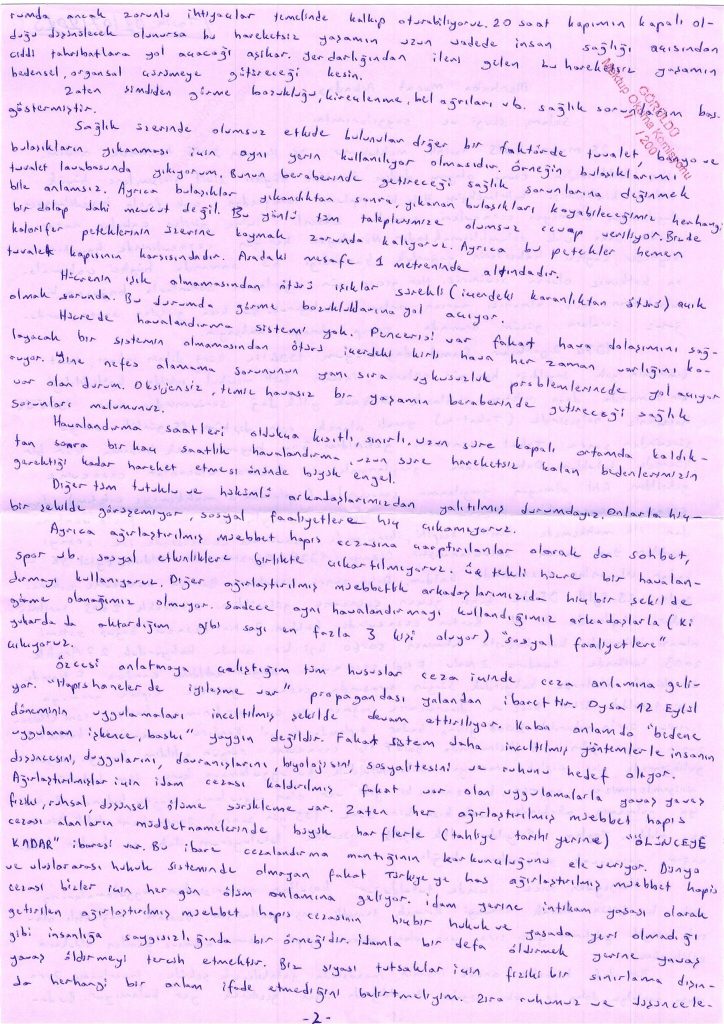 rumda ancak zorunlu ihtiyaçlar temelinde kalkıp oturabiliyoruz. 20 saat kapımın kapalı ol-
duğu düşünülecek olunursa bu hareketsiz yaşamın uzun vadede insan sağlığı açısından
ciddi tahribatlara yol açacağı aşikar. Yer darlığından ileri gelen bu hareketsiz yaşamın
bedensel, organsal çürümeye götüreceği kesin.
Zaten şimdiden görme bozukluğu, kireçlenme, bel ağrıları vb. sağlık sorunlarım baş
göstermiştir.
Sağlık üzerinde olumsuz etkide bulunulan diğer bir faktörde tuvalet, banyo ve
bulaşıkların yıkanması için aynı yerin kullanılıyor olmasıdır. Örneğin bulaşıklarımı
tuvalet lavabosunda yıkıyorum. Bunun beraberinde getireceği sağlık sorunlarına değinmek
bile anlamsız. Ayrıca bulaşıklar yıkandıktan sonra, yıkanan bulaşıkları koyabileceğimiz herhangi
bir dolap dahi mevcut değil. Bu yönlü tüm taleplerimize olumsuz cevap veriliyor. Bizde
kalorifer peteklerinin üzerine koymak zorunda kalıyoruz. Ayrıca bu petekler hemen
tuvalet kapısının karşısındadır. Aradaki mesafe 1 metreninde altındadır.
Hücrenin ışık almamasından ötürü ışıklar sürekli (içerdeki karanlıktan ötürü) açık
olmak zorunda. Bu durumda görme bozukluklarına yol açıyor.
Hücrede havalandırma sistemi yok. Penceresi var fakat hava dolaşımını sağ-
layacak bir sistemin olmamasından ötürü içerdeki kirli hava her zaman varlığını ko-
ruyor. Yine nefes alamama, sorununun yanı sıra uykusuzluk problemlerinede yol açıyor
var olan durum. Oksijensiz, temiz havasız bir yaşamın beraberinde getireceği sağlık
sorunları malumunuz.
Havalandırma saatleri oldukça kısıtlı, sınırlı. Uzun süre kapalı ortamda kaldık-
tan sonra bir kaç saatlik havalandırma, uzun süre hareketsiz kalan bedenlerimizin
gerektiği kadar hareket etmesi önünde büyük engel.
Diğer tüm tutuklu ve hükümlü arkadaşlarımızdan yalıtılmış durumdayız. Onlarla hiç-
bir şekilde görüşemiyor, sosyal faaliyetlere hiç çıkamıyoruz.
Ayrıca ağırlaştırılmış müebbet hapis cezasına çarptırılanlar olarak da sohbet,
spor vb. sosyal etkinliklere birlikte çıkartılmıyoruz. Üç tekli hücre bir havalan-
dırmayı kullanıyoruz. Diğer ağırlaştırılmış müebbetlik arkadaşlarımızıda hiç bir şekilde
görme olanağımız olmuyor. Sadece aynı havalandırmayı kullandığımız arkadaşlarla (ki
yukarda da aktardığım gibi sayı en fazla 3 kişi oluyor) "sosyal faaliyetlere"
çıkıyoruz.
Özcesi anlatmaya çalıştığım tüm hususlar ceza içinde ceza anlamına geli-
yor. "Hapishanelerde iyileşme var" propagandası yalandan ibarettir. Oysa 12 Eylül
döneminin uygulamaları inceltilmiş şekilde devam ettiriliyor. Kaba anlamda "bedene
uygulanan işkence, baskı" yaygın değildir. Fakat sistem daha inceltilmiş yöntemlerle insanın
düşüncesini, duygularını, davranışlarını, biyolojisini, sosyalitesini ve ruhunu hedef alıyor.
Ağırlaştırılmışlar için idam cezası kaldırılmış fakat var olan uygulamalarla yavaş yavaş
fiziki, ruhsal, düşünsel ölüme sürükleme var. Zaten her ağırlaştırılmış müebbet hapis
cezası alanların müddetnamelerinde büyük harflerle (tahliye tarihi yerine) "ÖLÜNCEYE
KADAR" ibaresi var. Bu ibare cezalandırma mantığının korkunçluğunu ele veriyor. Dünya
ve uluslararası hukuk sisteminde olmayan fakat Türkiye'ye has ağırlaştırılmış müebbet hapis
cezası bizler için her gün ölüm anlamına geliyor. İdam yerine intikam yasası olarak
getirilen ağırlaştırılmış müebbet hapis cezasının hiçbir hukuk ve yasada yeri olmadığı
gibi insanlığa saygısızlığında bir örneğidir. İdamla bir defa öldürmek yerine yavaş
yavaş öldürmeyi tercih etmektir. Biz siyasi tutsaklar için fiziki bir sınırlama dışın-
da herhangi bir anlam ifade etmediğini belirtmeliyim. Zira ruhumuz ve düşüncele-
-2-
GÖRÜLDÜ
Mektup Okuma Komisyonu
/ /200